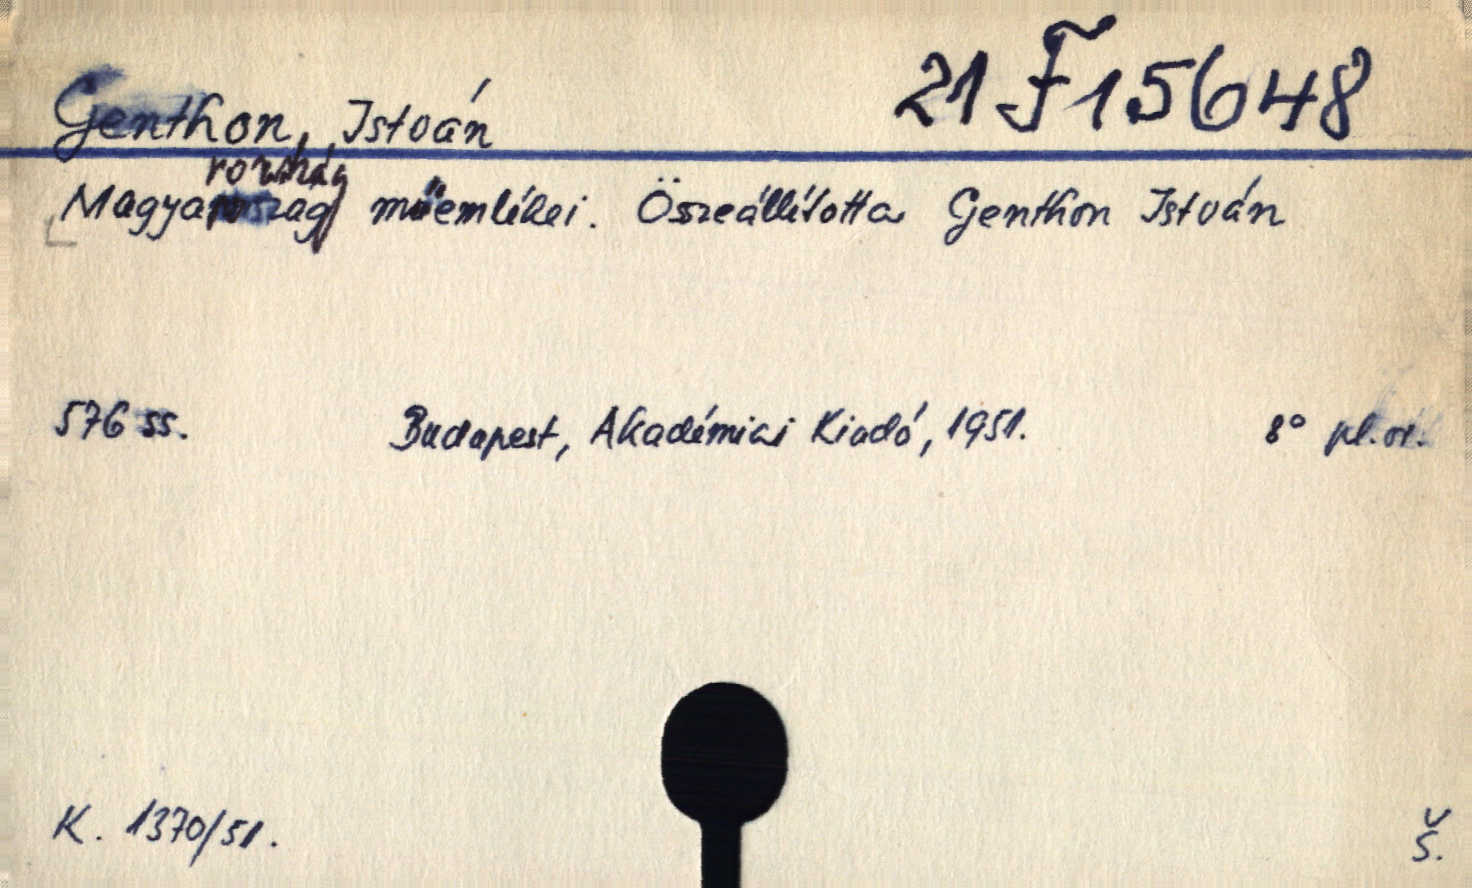 21 F 15648
Genthon, István
Magyarország műemlékei. Öszeállította Genthon István
576 ss. Budapest, Akadémiai Kiadó, 1951. 8° pl. or.
K. 1370/51. Š.